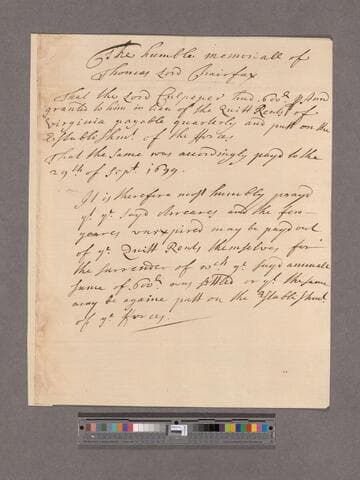 The humble memoriall of
Thomas Lord Fairfax
That the Lord Culpeper had 600£ p Ann
granted to him in lieu of the Quitt Rents of
Virginia payable quarterly and putt on the
Establishmt. of the fforces
That the same was accordingly payd to the
29th of Sept. 1694.
It is therefore most humbly prayd
yt ye sayd Arreares and the few
yeares unexpired may be payd out
of ye Quitt Rents themselves for
the surrender of wch ye sayd annuall
sume of 600£ was settled or yt the same
may be againe putt on the Establishmt.
of ye fforces.